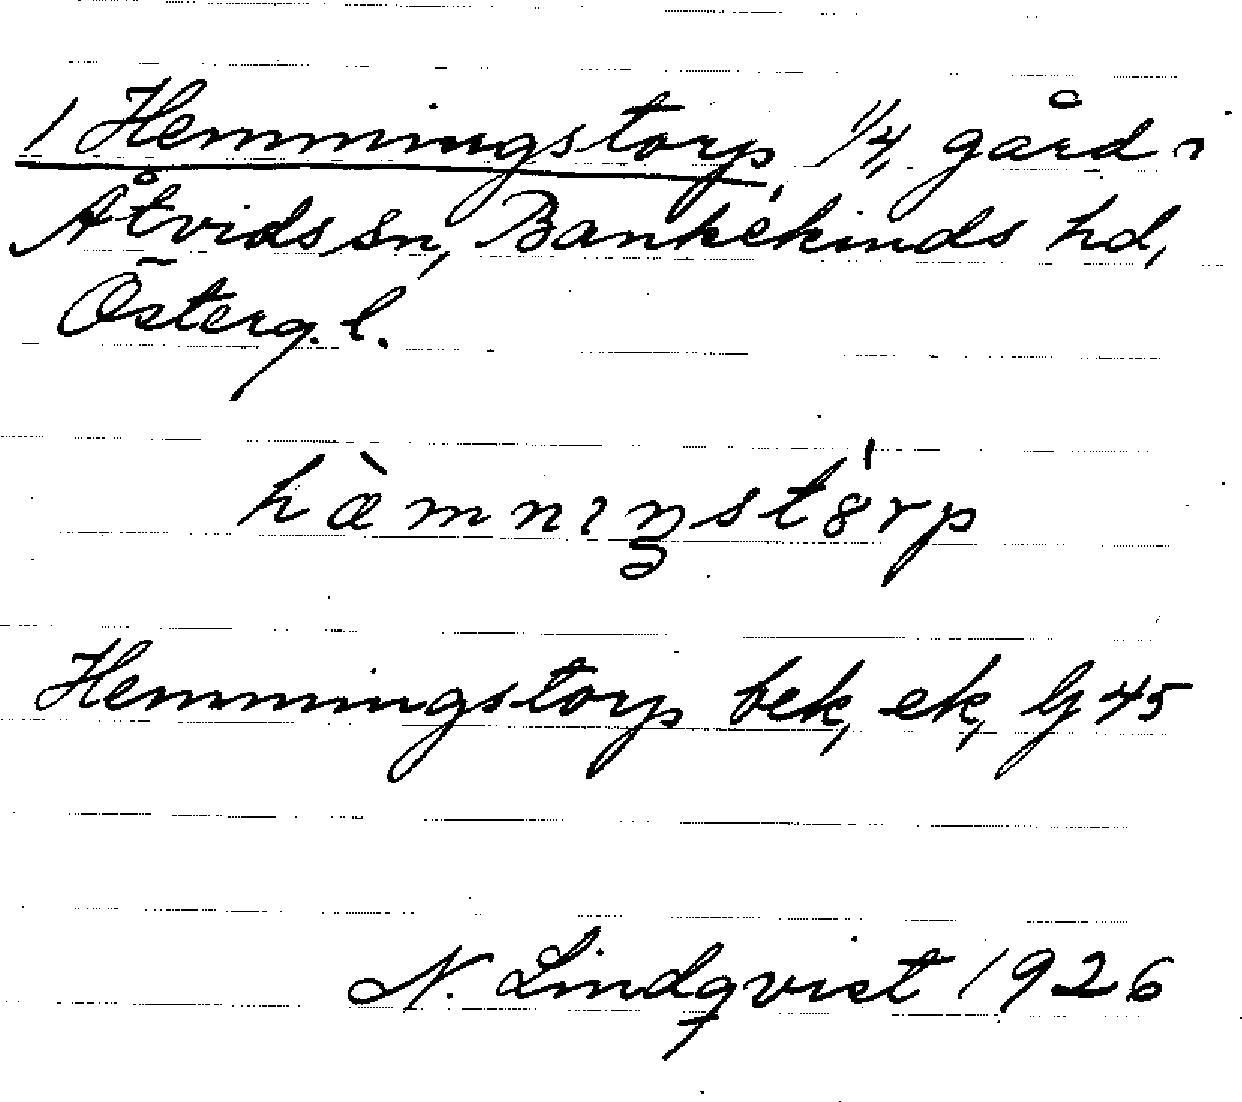 1 Hemmingstorp, 1/4 gård i
Åtvids sn, Bankekinds hd,
Österg. l.
hæ̀mnıŋstȣ́rp
Hemmingstorp bek, ek, Gj 45
N. Lindqvist 1926